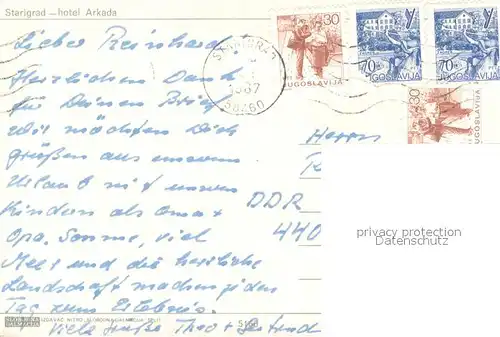 Starigrad — hotel Arkada
Lieber Reinhard!
Herzlichen Dank
für Deinen Brief
Wir möchten Dich
grüßen aus unserem
Urlaub mit unseren
Kindern als Oma +
Opa. Sonne, viel
Meer und die herrliche
Landschaft machen jeden
Tag zum Erlebnis.
Viele Grüße Theo +
STARIGRAD
1987
58460
30
JUGOSLAVIJA
70
JUGOSLAVIJA
70
JUGOSLAVIJA
30
JUGOSLAVIJA
Herrn
R
DDR
440
privacy protection
Datenschutz
SLOBODNA
DALMACIJA